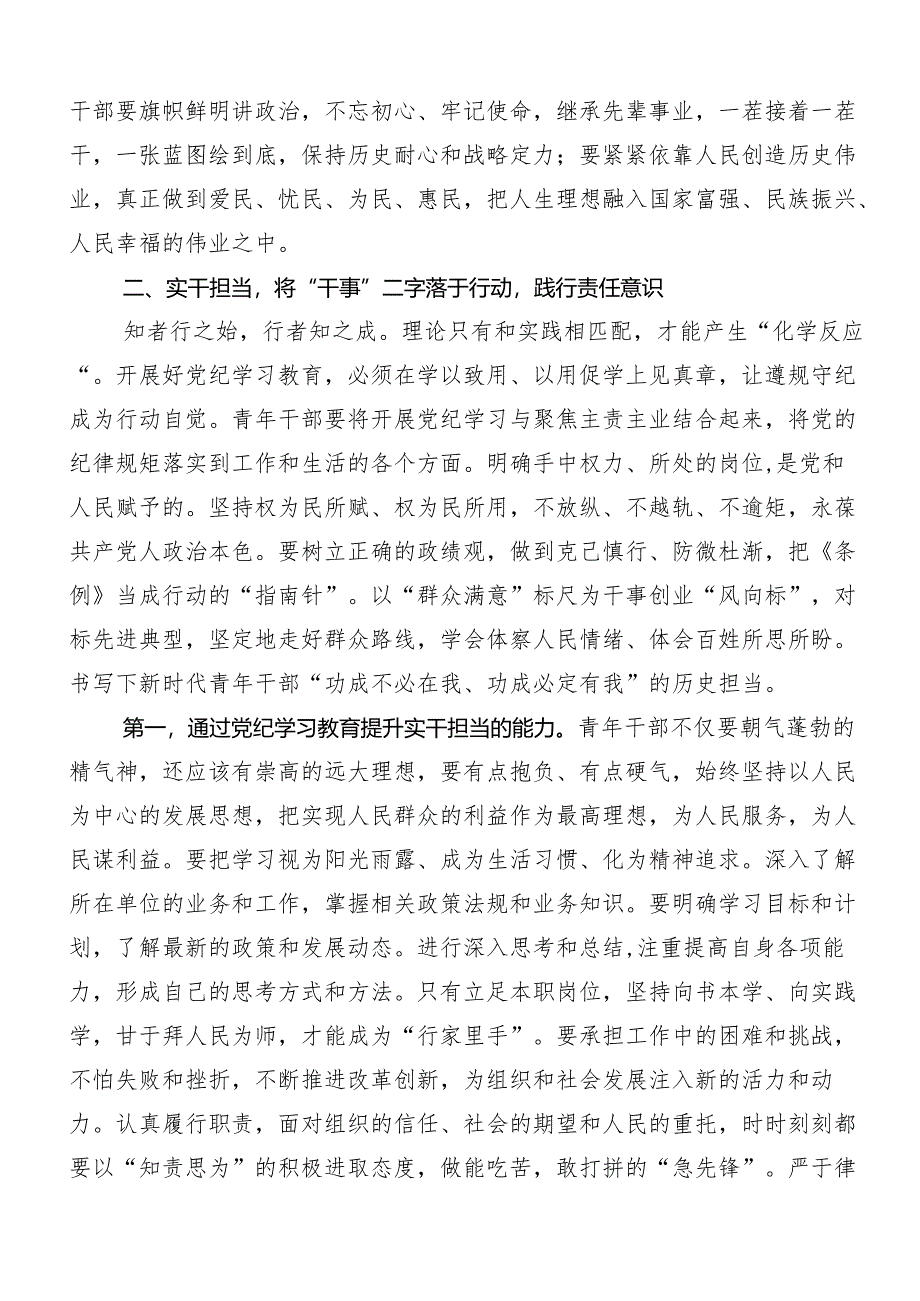 干部要旗帜鲜明讲政治，不忘初心、牢记使命，继承先辈事业，一茬接着一茬
干，一张蓝图绘到底，保持历史耐心和战略定力；要紧紧依靠人民创造历史伟
业，真正做到爱民、忧民、为民、惠民，把人生理想融入国家富强、民族振兴、
人民幸福的伟业之中。
二、实干担当，将“干事”二字落于行动，践行责任意识
知者行之始，行者知之成。理论只有和实践相匹配，才能产生“化学反应
“。开展好党纪学习教育，必须在学以致用、以用促学上见真章，让遵规守纪
成为行动自觉。青年干部要将开展党纪学习与聚焦主责主业结合起来，将党的
纪律规矩落实到工作和生活的各个方面。明确手中权力、所处的岗位,是党和
人民赋予的。坚持权为民所赋、权为民所用，不放纵、不越轨、不逾矩，永葆
共产党人政治本色。要树立正确的政绩观，做到克己慎行、防微杜渐，把《条
例》当成行动的“指南针”。以“群众满意”标尺为干事创业“风向标”，对
标先进典型，坚定地走好群众路线，学会体察人民情绪、体会百姓所思所盼。
书写下新时代青年干部“功成不必在我、功成必定有我”的历史担当。
第一，通过党纪学习教育提升实干担当的能力。青年干部不仅要朝气蓬勃的
精气神，还应该有崇高的远大理想，要有点抱负、有点硬气，始终坚持以人民
为中心的发展思想，把实现人民群众的利益作为最高理想，为人民服务，为人
民谋利益。要把学习视为阳光雨露、成为生活习惯、化为精神追求。深入了解
所在单位的业务和工作，掌握相关政策法规和业务知识。要明确学习目标和计
划，了解最新的政策和发展动态。进行深入思考和总结,注重提高自身各项能
力，形成自己的思考方式和方法。只有立足本职岗位，坚持向书本学、向实践
学，甘于拜人民为师，才能成为“行家里手”。要承担工作中的困难和挑战，
不怕失败和挫折，不断推进改革创新，为组织和社会发展注入新的活力和动
力。认真履行职责，面对组织的信任、社会的期望和人民的重托，时时刻刻都
要以“知责思为”的积极进取态度，做能吃苦，敢打拼的“急先锋”。严于律